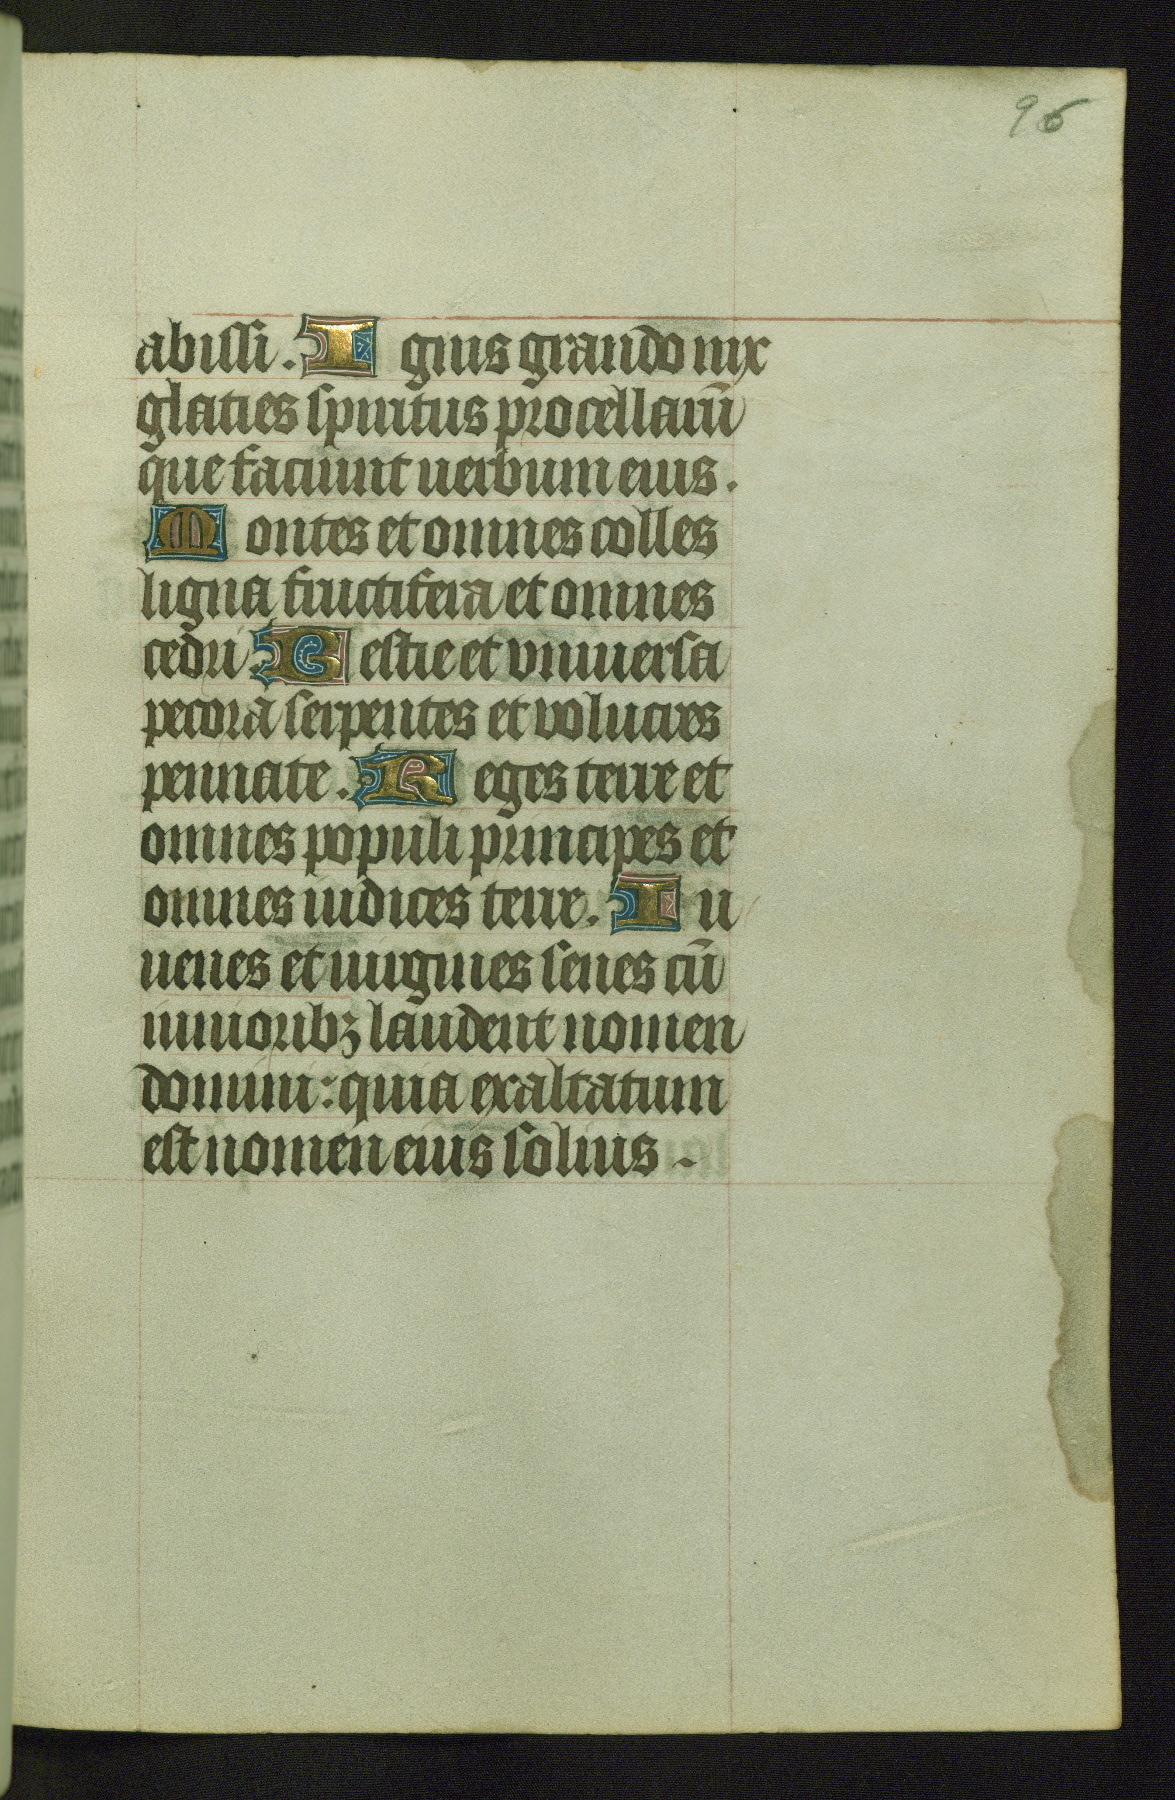 96
abissi. Ignis grando nix
glaties spiritus procellarū
que faciunt uerbum eius.
Montes et omnes colles
ligna fructifera et omnes
cedri. Bestie et vniuersa
pecora serpentes et volucres
pennate. Reges terre et
omnes populi principes et
omnes iudices terre. Iu
uenes et uirgines senes cū
iunioribꝫ laudent nomen
domini: quia exaltatum
est nomen eius solius -